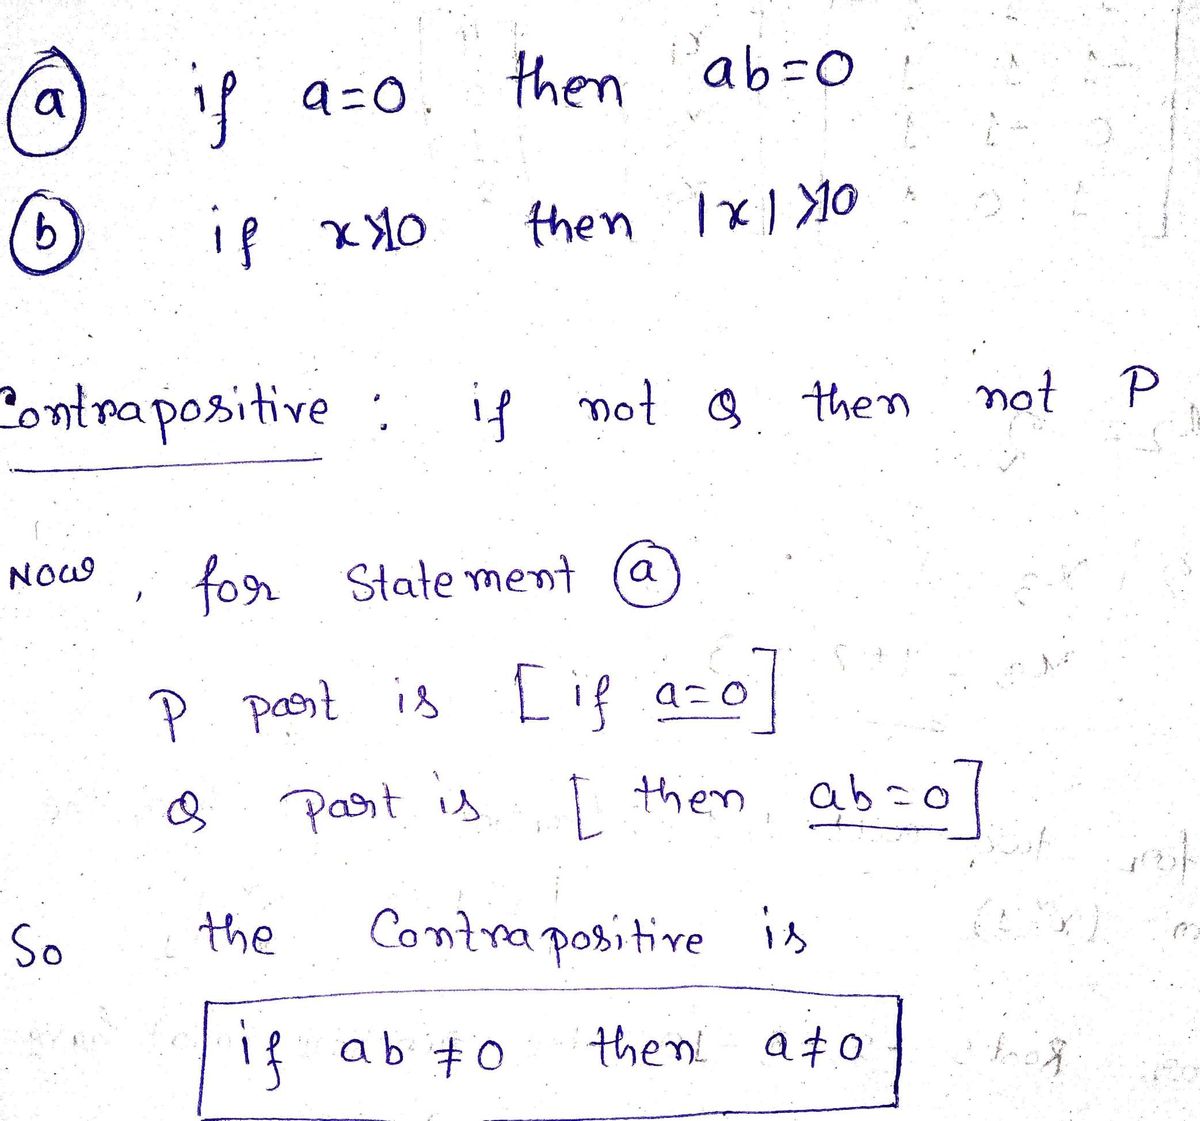 (a) if a=0. then ab=0
(b) if x>10 then |x|>10
Contrapositive : if not Q then not P
Now, for Statement (a)
P part is [if a=0]
Q part is [then ab=0]
So the Contrapositive is
if ab≠0 then a≠0